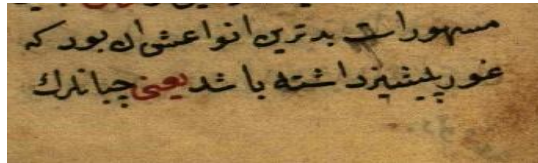 مسهورات بدترین انواعش ان بود که
غور پیشیز داشته باشد یعنی چبانارك